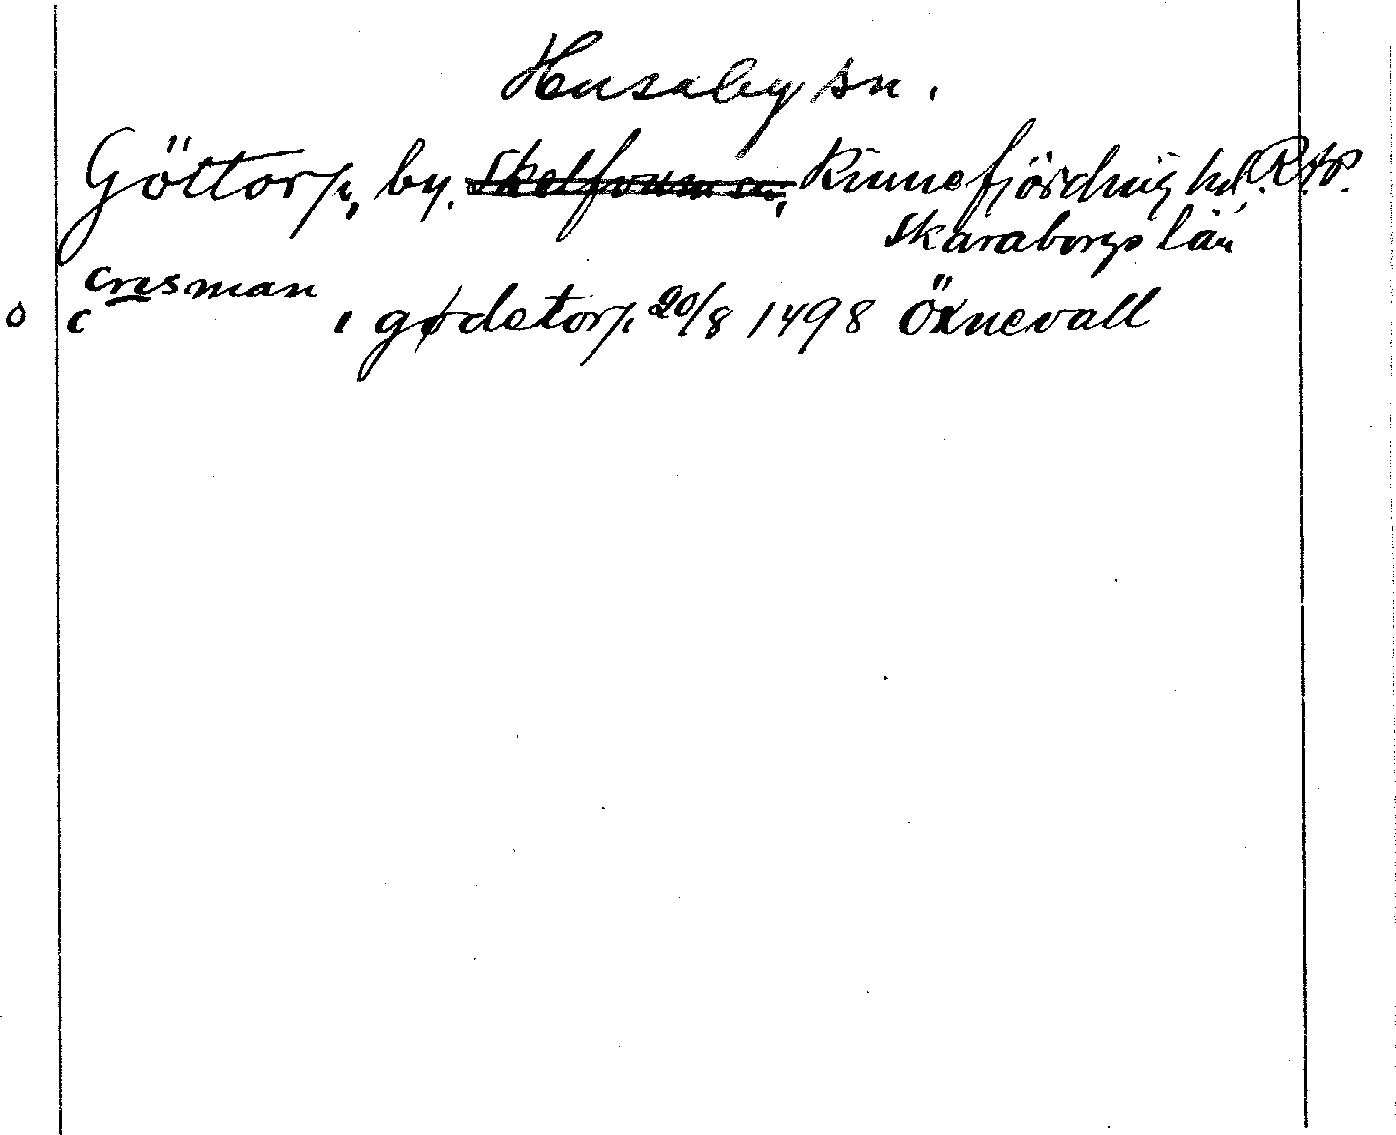 Husaby sn.
Göttorp, by. Skelfvum sn, Kinnefjärding hd, R.A.P.
Skaraborgs län
cresman
o c , i gødetorp 20/8 1498 Öxnevall